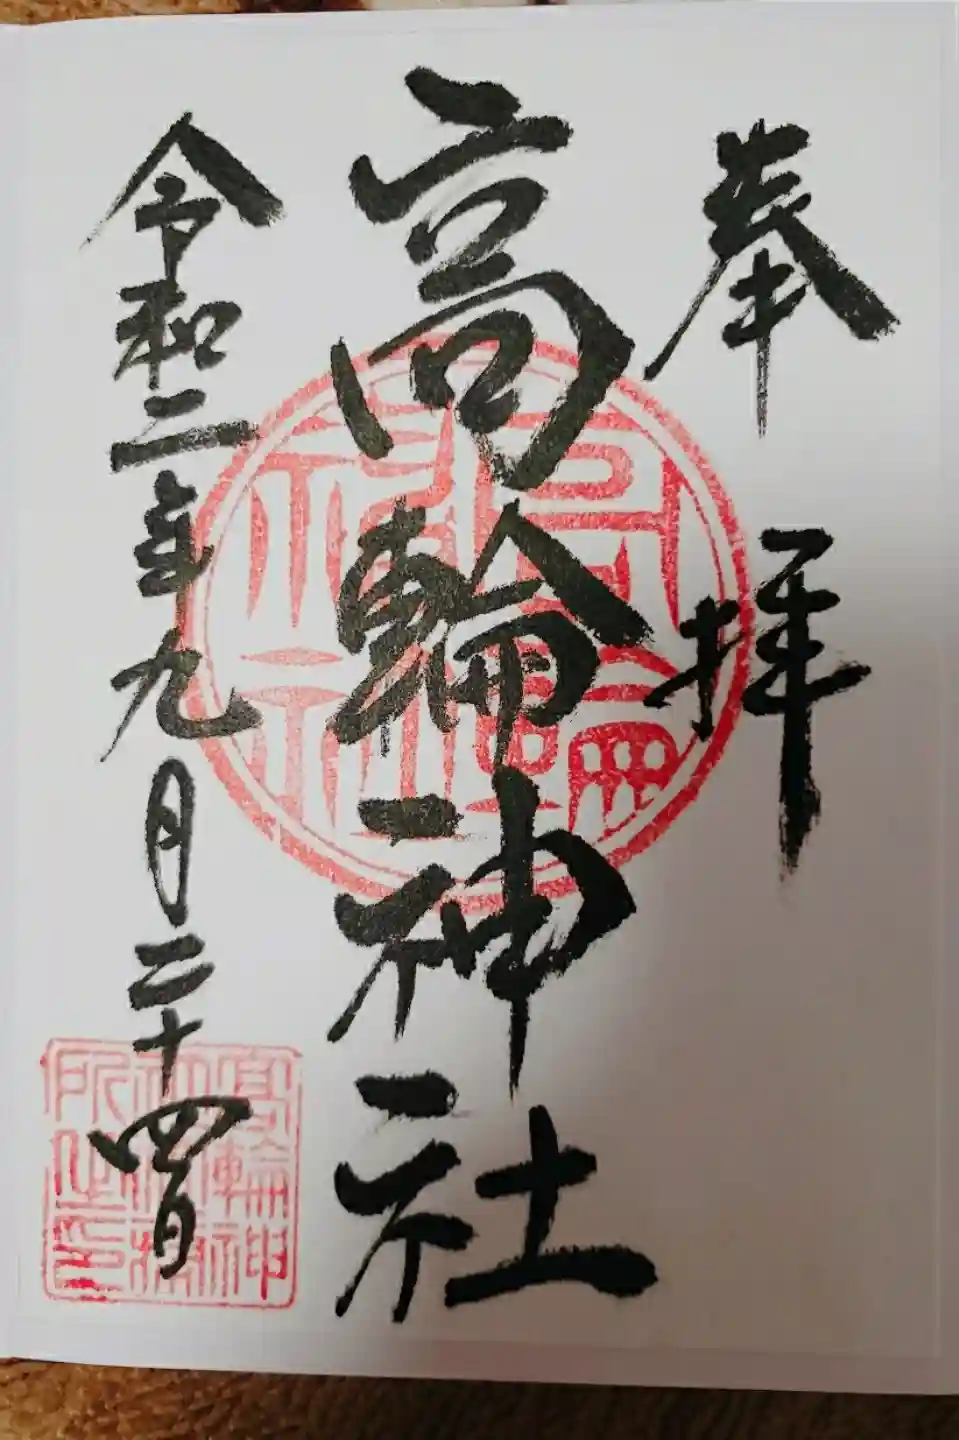 奉拝
高輪神社
令和二年九月二十四日
高輪神
社社務
所之印